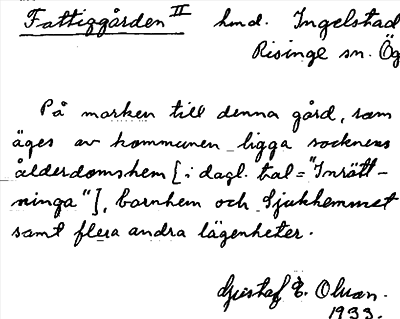 Fattiggården II hmd. Ingelstad
Risinge sn. Ög
På marken till denna gård, som
äges av kommunen ligga socknens
ålderdomshem [i dagl. tal = "Inrätt-
ninga"], barnhem och Sjukhemmet
samt flera andra lägenheter.
Gustaf E. Olsson.
1933.